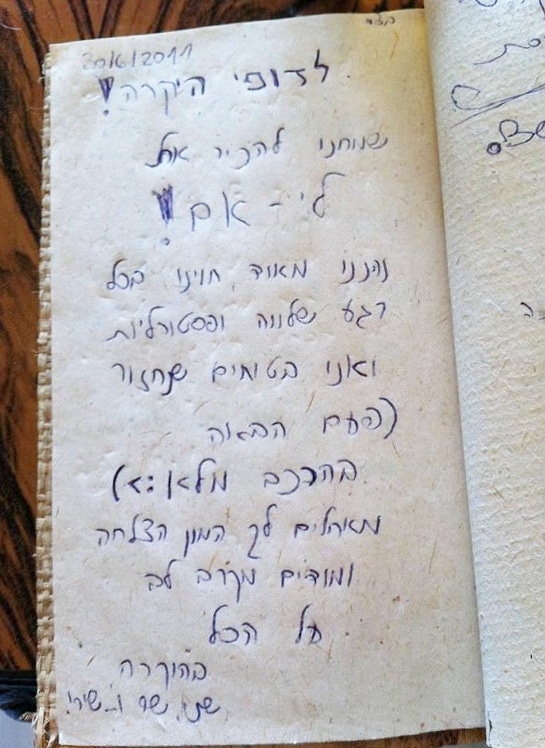 בס"ד
30/6/2011
לדופי היקרה!
שמחנו להכיר את
לי - אם!
נהננו מאוד, חוינו בכל
רגע שלווה ופסטורליות
ואנו בטוחים שנחזור
(פעם הבאה
בהרכב מלא :))
מאחלים לך המון הצלחה
ומודים מקרב לב
על הכל
בהוקרה